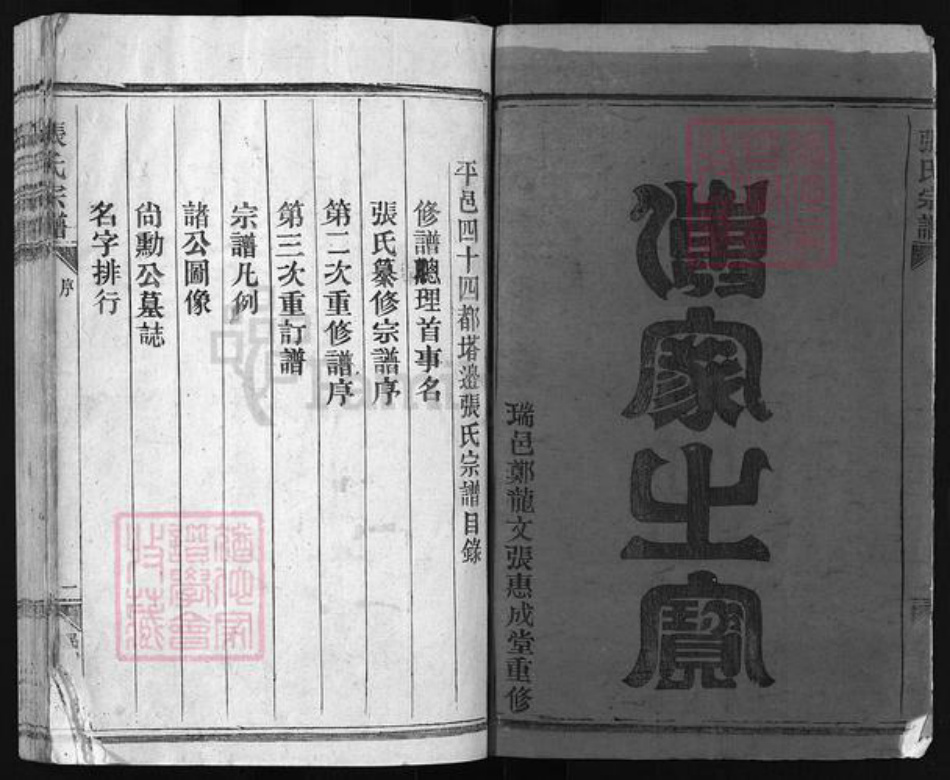 張氏宗譜
傳家之寶
瑞邑鄭龍文張惠成堂重修
平邑四十四都塔邊張氏宗譜目錄
修譜總理首事名
張氏纂修宗譜序
第二次重修譜序
第三次重訂譜
宗譜凡例
諸公圖像
尙勳公墓誌
名字排行
張氏宗譜
序
一